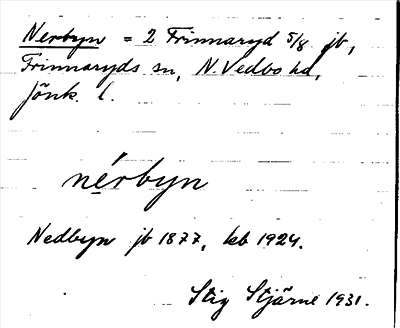 Nerbyn = 2 Frinnaryd 5/8 jb,
Frinnaryds sn, N. Vedbo hd,
Jönk. l.
nérbyn
Nedbyn jb 1877, kb 1924.
Stig Stjärne 1931.